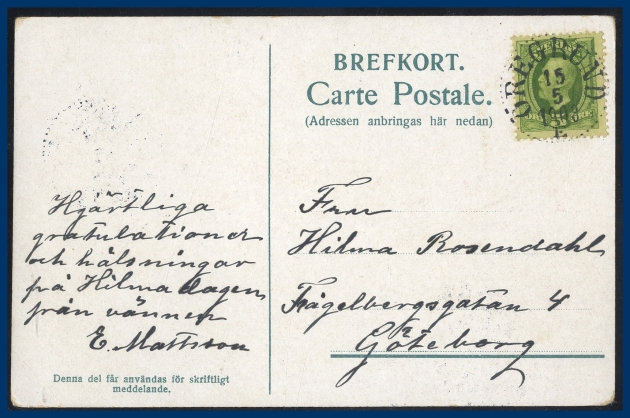 BREFKORT.
Carte Postale.
(Adressen anbringas här nedan)
ÖREGRUND
15
5
Hjärtliga
gratulationer
och hälsningar
på Hilma dagen
från vännen
E. Mattsson
Denna del får användas för skriftligt
meddelande.
Fru
Hilma Rosendahl
Fågelbergsgatan 4
Göteborg